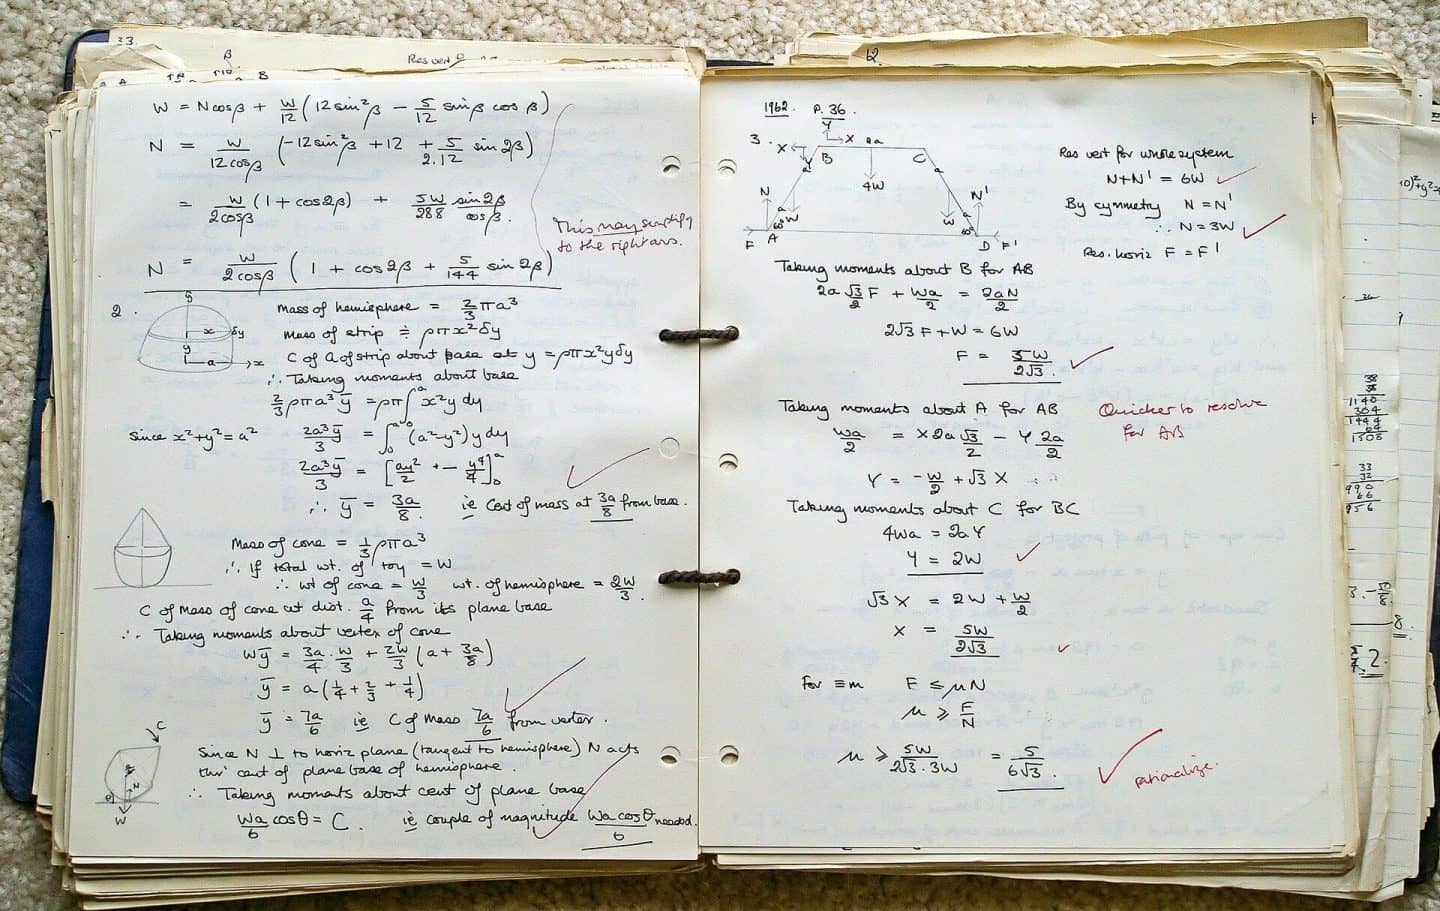 33
β
Res vert
B
W = Ncosβ + W/12 (12sin²β − 5/12 sinβ cosβ)
N = W/12cosβ (−12sin²β + 12 + 5/2.12 sin2β)
= W/2cosβ (1 + cos2β) + 5W/288 sin2β/cosβ.
This may simplify
to the right ans.
N = W/2cosβ (1 + cos2β + 5/144 sin2β)
2.
x
δy
y
a
x
mass of hemisphere = 2/3 πa³
mass of strip ≑ ρπx²δy
C of G of strip about base at y = ρπx²yδy
∴ Taking moments about base
2/3 ρπa³ȳ = ρπ∫₀ᵃ x²y dy
Since x²+y² = a² 2a³ȳ/3 = ∫₀ᵃ (a²−y²) y dy
2a³ȳ/3 = [ay²/2 − y⁴/4]₀ᵃ
∴ ȳ = 3a/8. ie Cent of mass at 3a/8 from base.
Mass of cone = 1/3 ρπa³
∴ If total wt. of toy = W
∴ wt of cone = W/3 wt. of hemisphere = 2W/3.
C of Mass of cone at dist. a/4 from its plane base
∴ Taking moments about vertex of cone
Wȳ = 3a/4 . W/3 + 2W/3 (a + 3a/8)
ȳ = a(1/4 + 2/3 + 1/4)
ȳ = 7a/6 ie C of Mass 7a/6 from vertex.
C
N
θ
W
Since N ⊥ to horiz plane (tangent to hemisphere) N acts
thro' cent of plane base of hemisphere.
∴ Taking moments about cent of plane base
Wa/6 cosθ = C. ie couple of magnitude Wa cosθ/6 needed.
12.
1962. P. 36.
3.
Y
X
X
Y
B
2a
C
4W
a
a
a
a
N
W
W
N'
60°
60°
F
A
D
F'
Res vert for whole system
N+N' = 6W
By symmetry N = N'
∴ N = 3W
Res. horiz F = F'
Taking moments about B for AB
2a √3/2 F + Wa/2 = 2aN/2
2√3 F + W = 6W
F = 5W/2√3.
Taking moments about A for AB
Quicker to resolve
for AB
Wa/2 = X 2a √3/2 − Y 2a/2
Y = −W/2 + √3 X
Taking moments about C for BC
4Wa = 2aY
Y = 2W
√3 X = 2W + W/2
X = 5W/2√3
For ≡m F ≤ μN
μ ≥ F/N
μ ≥ 5W/2√3.3W = 5/6√3.
rationalize.
38
38
1140
304
1444
64
1508
33
32
990
66
956